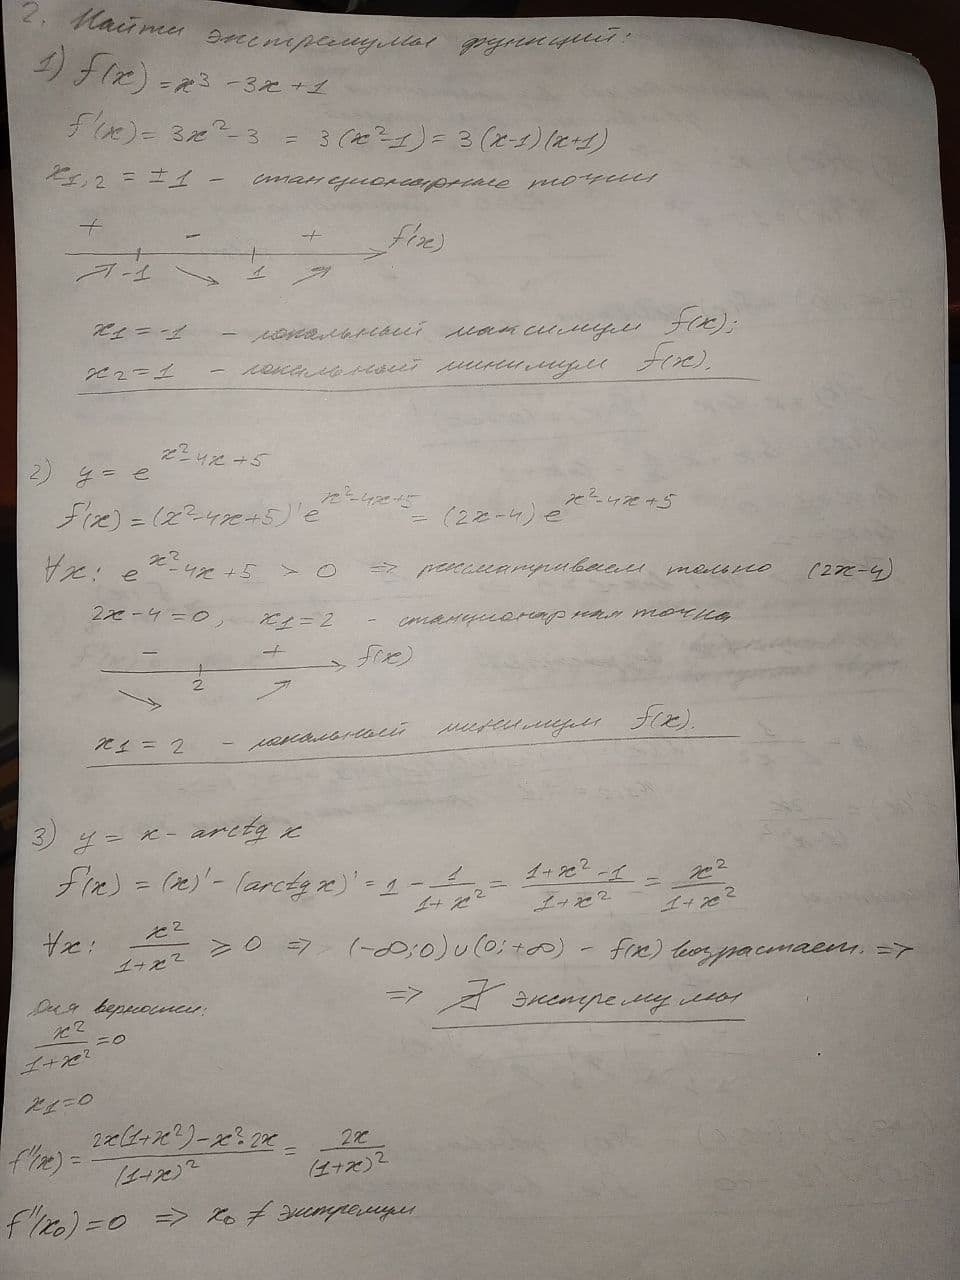 2. Найти экстремумы функций:
1) f(x) = x³ - 3x + 1
f'(x) = 3x² - 3 = 3(x² - 1) = 3(x-1)(x+1)
x₁,₂ = ±1 - станционарные точки
+ - + f'(x)
↗ -1 ↘ 1 ↗
x₁ = -1 - локальный максимум f(x);
x₂ = 1 - локальный минимум f(x).
2) y = e^(x²-4x+5)
f'(x) = (x²-4x+5)' e^(x²-4x+5) = (2x-4) e^(x²-4x+5)
∀x: e^(x²-4x+5) > 0 => рассматриваем только (2x-4)
2x-4=0, x₁=2 - станционарная точка
- + f(x)
↘ 2 ↗
x₁ = 2 - локальный минимум f(x).
3) y = x - arctg x
f'(x) = (x)' - (arctg x)' = 1 - 1/(1+x²) = (1+x²-1)/(1+x²) = x²/(1+x²)
∀x: x²/(1+x²) ⩾ 0 => (-∞;0)∪(0;+∞) - f(x) возрастает. =>
=> ∄ экстремумы
Для верности:
x²/(1+x²) = 0
x₁=0
f''(x) = (2x(1+x²) - x²·2x)/(1+x)² = 2x/(1+x)²
f''(x₀) = 0 => x₀ ≠ экстремум